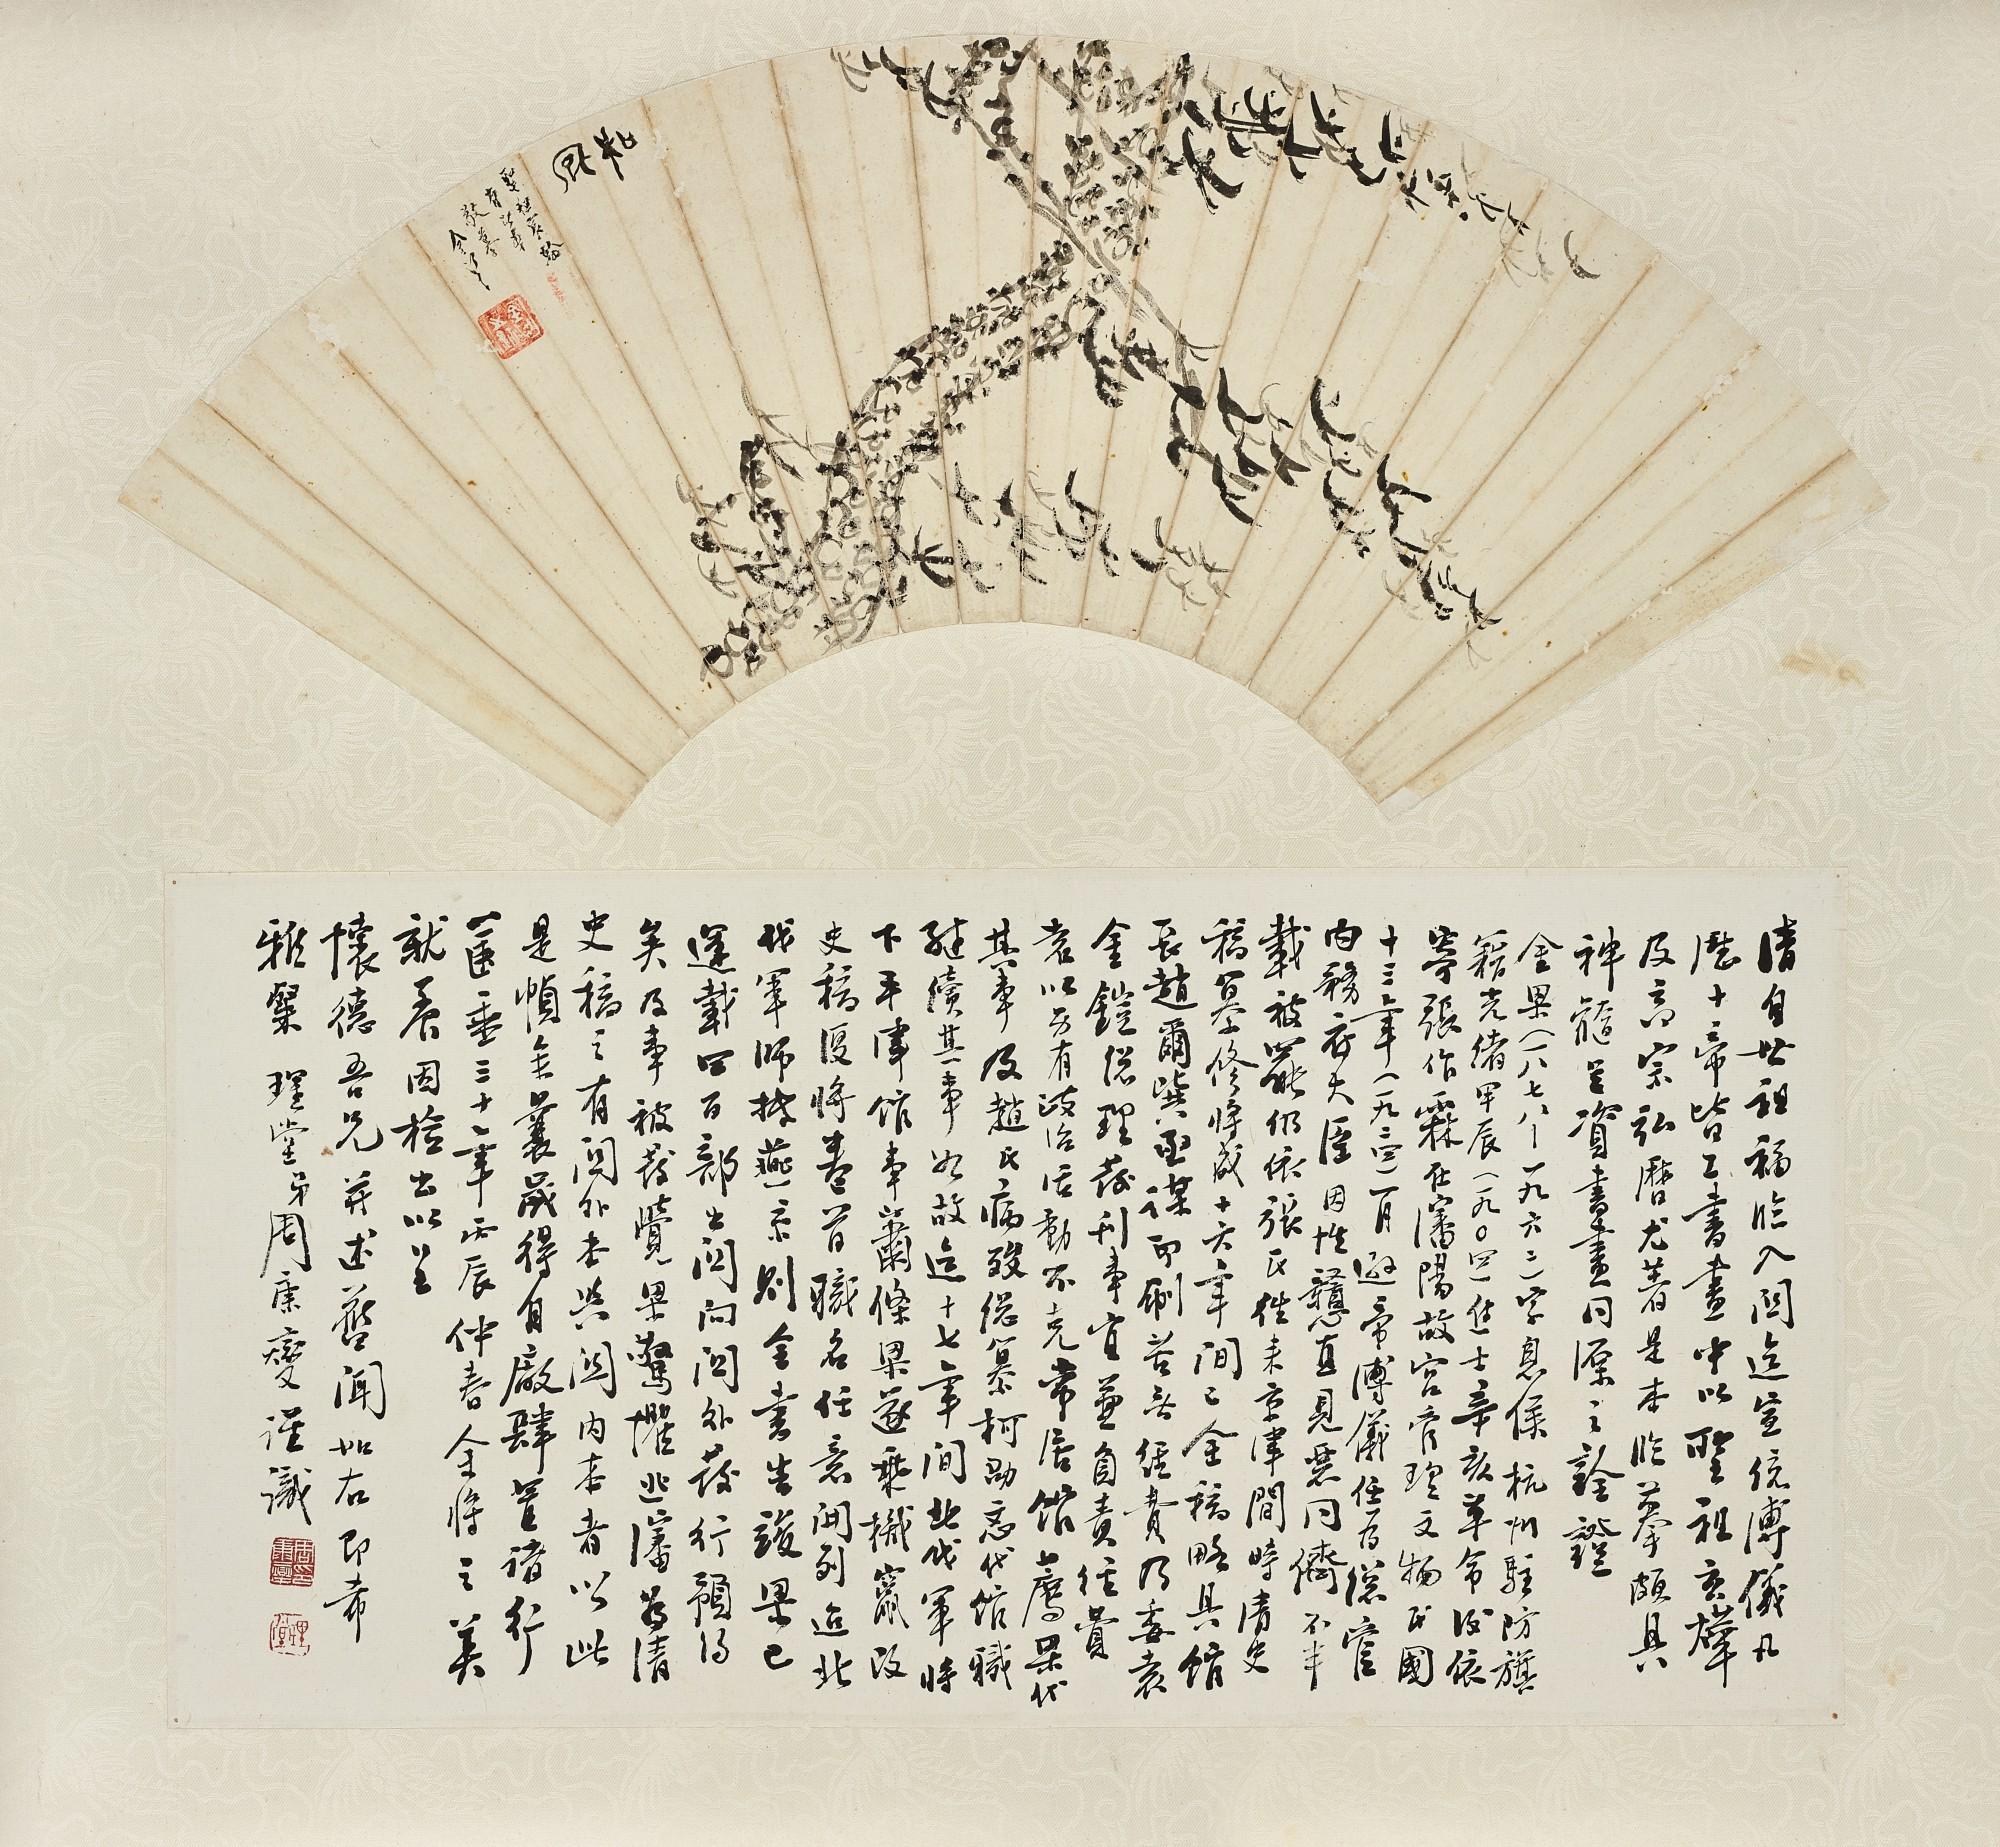 和風
聖祖宸翰
有此筆
敬摹
金梁
清自世祖福臨入關迄宣統溥儀凡
歷十帝皆工書畫中以聖祖玄燁
及高宗弘曆尤著是本臨摹頗具
神髓足資書畫同源之證
金梁(一八七八—一九六二)字息侯杭州駐防旗
籍光緒甲辰(一九〇四)進士辛亥革命後依
張作霖在瀋陽故宮管理文物民國
十三年(一九二四)一月遜帝溥儀任為總管
內務府大臣因性戇直見惡同儕不半
載被罷仍依張氏往來京津間時清史
稿纂修將成十六年間已全稿略具館
長趙爾巽亟謀印刷苦無經費乃委袁
金鎧總理發刊事宜並負責經費
袁以另有政治活動不克常居館薦梁代
其事及趙氏病歿總纂柯劭忞代館職
繼續其事如故迄十七年間北伐軍時
下平津館事蕭條梁遂乘機竄改
史稿復將卷首職名任意開列迨北
伐軍師按燕京則全書告竣梁已
運載四百部出關向關外發行預約
矣及事被發覺梁驚懼逃瀋為清
史稿之有關外本與關內本者以此
是幀余曩歲得自廠肆置諸行
篋垂三十年丙辰仲春余將之美
就養因檢出以呈
懷德吾兄並述舊聞如右即希
雅鑒 理堂弟周康燮謹識
周康燮印
理堂